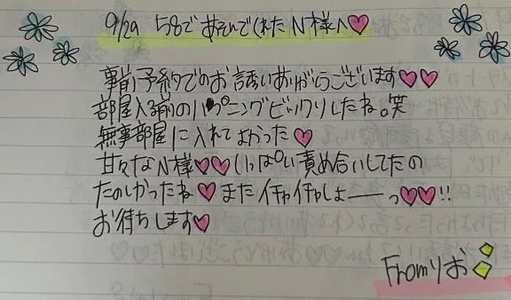 9/29 58で あそんでくれた N様へ♡
事前予約でのお誘いありがとうございます♡♡
部屋入る前のハプニングビックリしたね。笑
無事部屋に入れてよかった♡
甘々なN様♡♡いっぱい責め合いしてたの
たのしかったね♡またイチャイチャしよーーっ♡♡!!
お待ちします♡
Fromりお